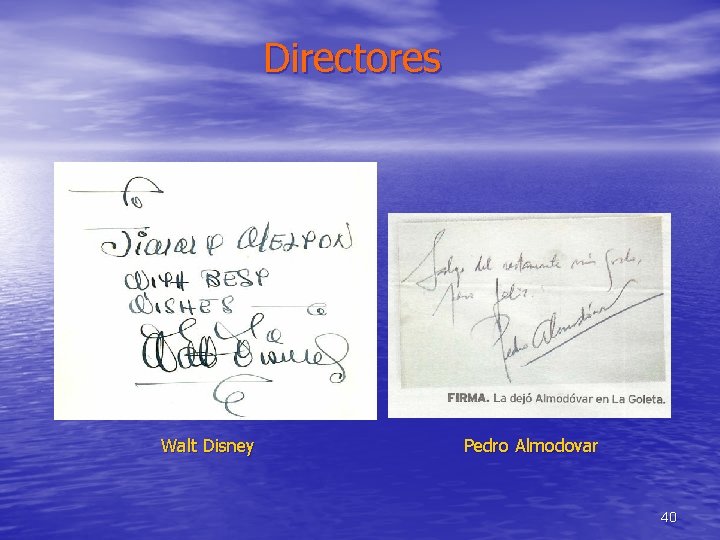 Directores
To
WITH BEST
WISHES
Walt Disney
Salgo del restaurante más gordo,
pero feliz.
Pedro Almodóvar
FIRMA. La dejó Almodóvar en La Goleta.
Walt Disney
Pedro Almodovar
40